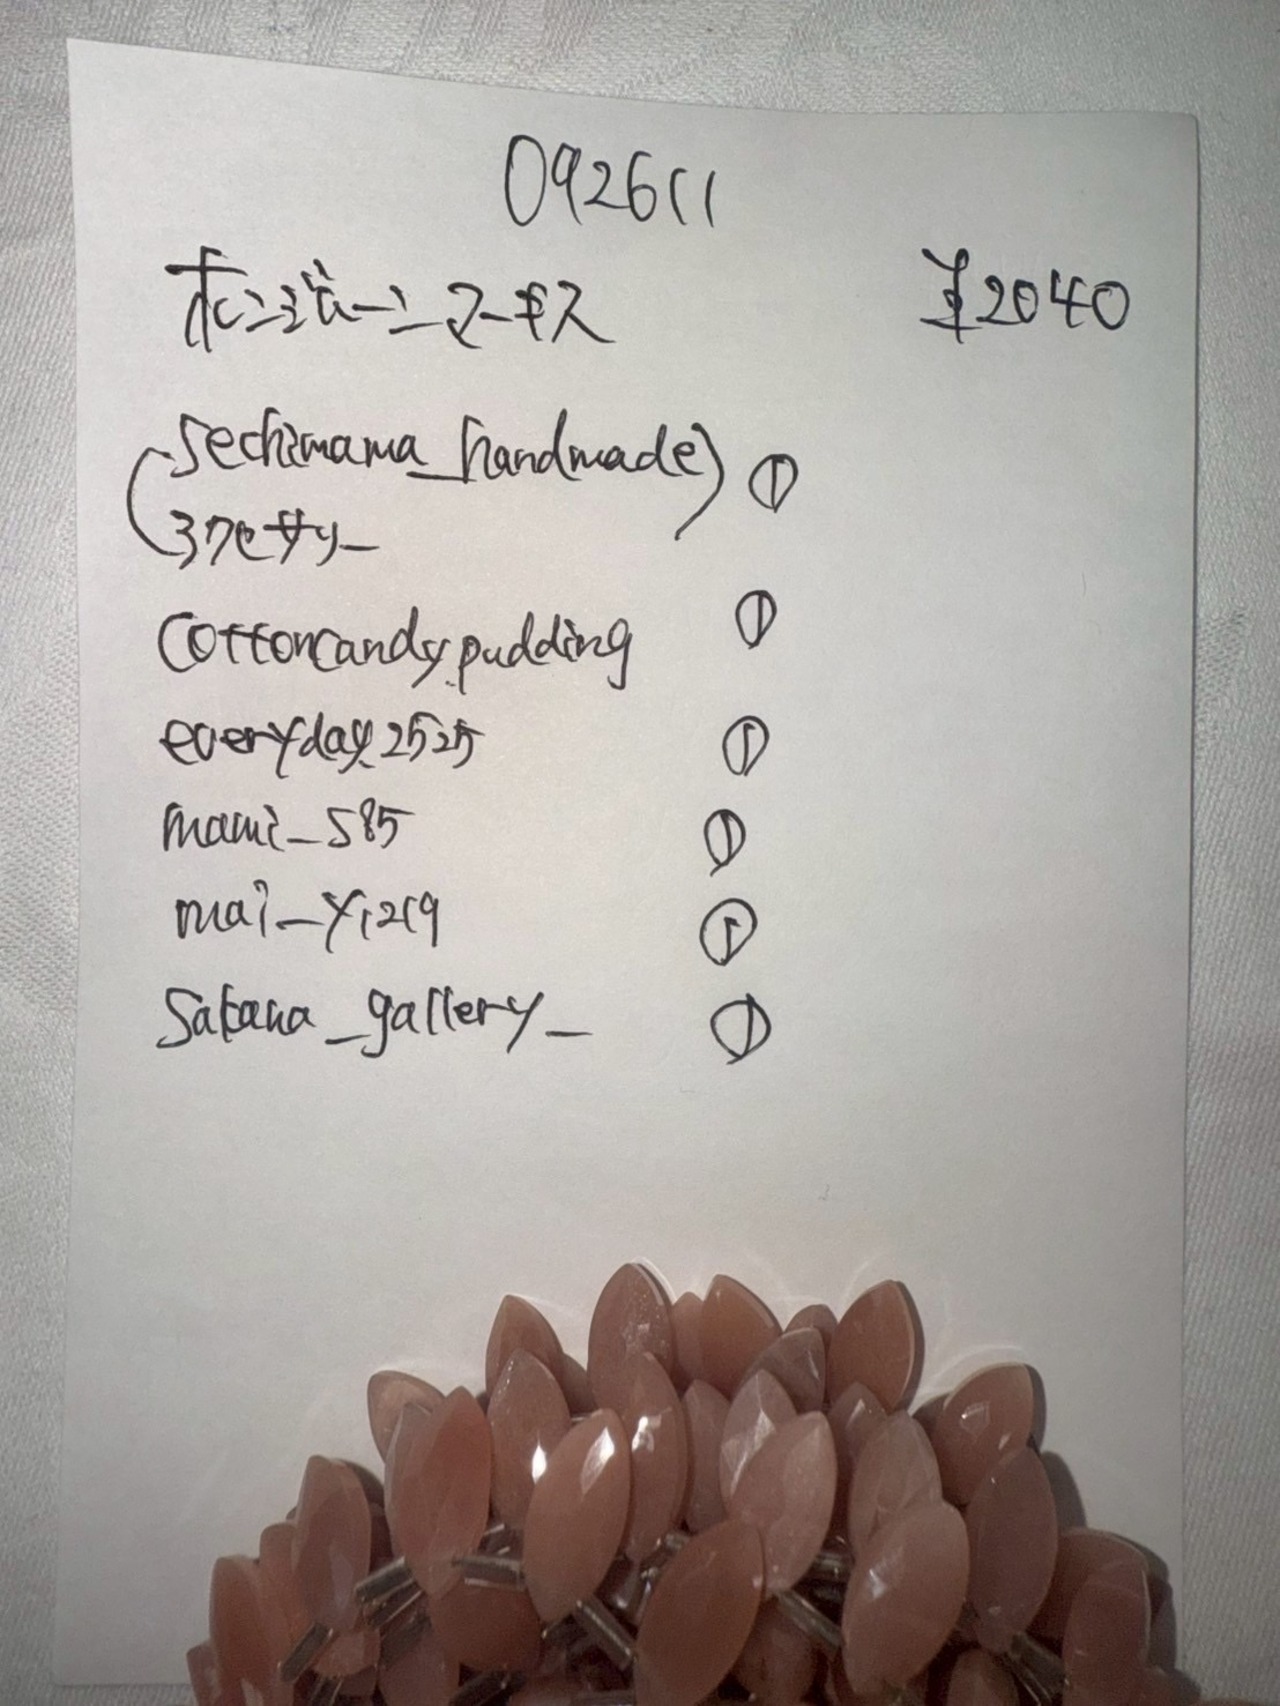 092611
ホンジュ一ンマーキス ¥2040
(sechimama_handmade) ①
アクセサリー
cottoncandy.pudding ①
everyday.2525 ①
mami_585 ①
mai_y1219 ①
Sakana_gallery_ ①